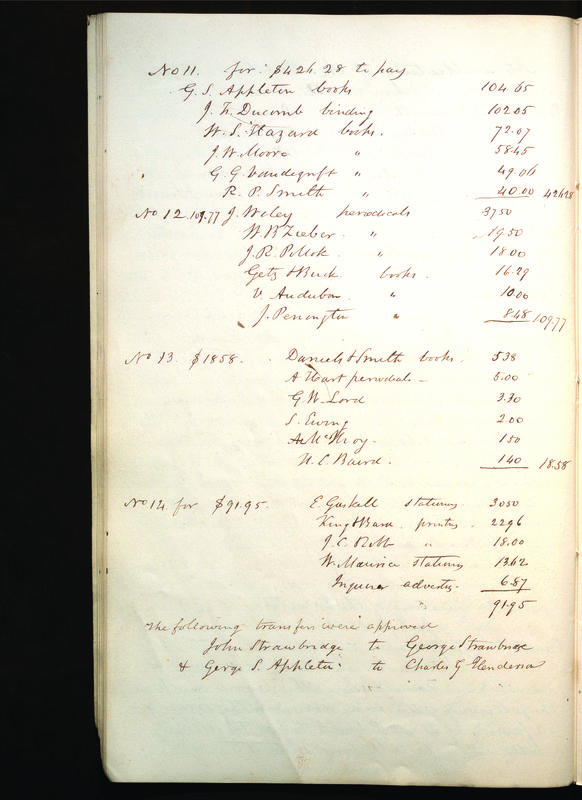 No 11. for $426.28 to pay
G. S. Appleton books 104.65
J. H. Ducomb binding 102.05
W. S. Hazard books. 72.07
J. W. Moore " 58.45
G. G. Vandegrift " 49.06
R. P. Smith " 40.00 426.28
No 12. 109.77 J. Wiley periodicals 37.50
W. B. Zieber. " 19.50
J. R. Pollok. " 18.00
Getz & Buck books. 16.29
V. Audubon. " 10.00
J. Penington " 8.48 109.77
No 13. $1858. Daniels & Smith books. 5.38
A Hart periodicals 5.00
G. W. Lord 3.30
S. Ewing 2.00
A. McElroy. 1.50
H. C. Baird. 1.40 18.58
No 14. for $91.95. E. Gaskell stationery 30.50
King & Baird. printing 22.96
J. C. " 18.00
W. Maurice stationery 13.62
Inquirer advertis. 6.87
91.95
The following transfers were approved
John Strawbridge to George Strawbridge
& George S. Appleton to Charles G Henderson